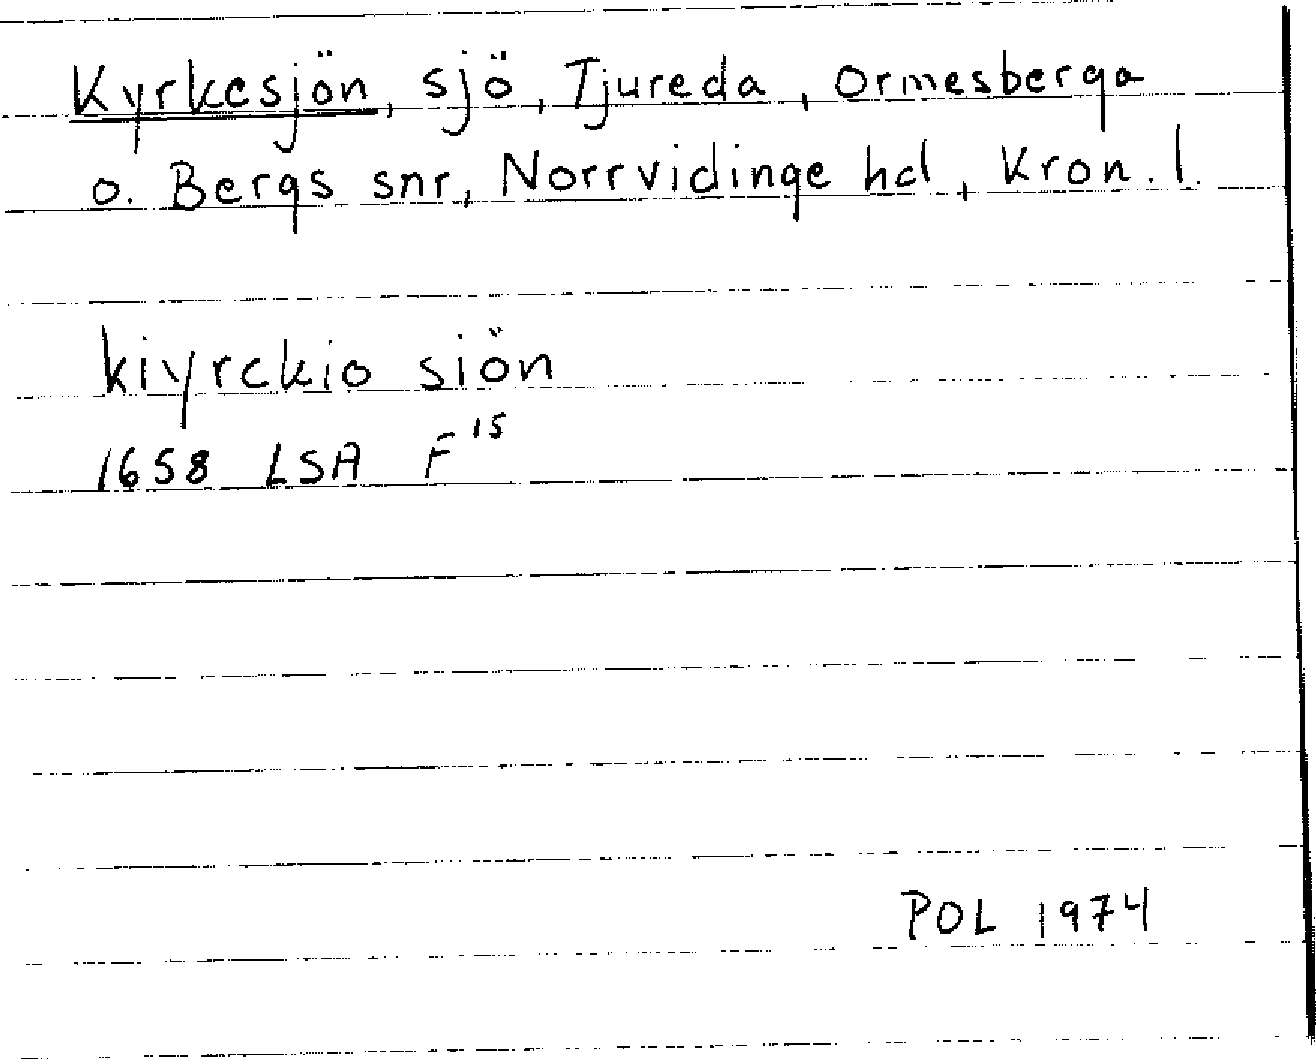 Kyrkesjön, sjö, Tjureda, Ormesberga
o. Bergs snr, Norrvidinge hd, Kron. l.
kiyrckio siön
1658 LSA F15
POL 1974